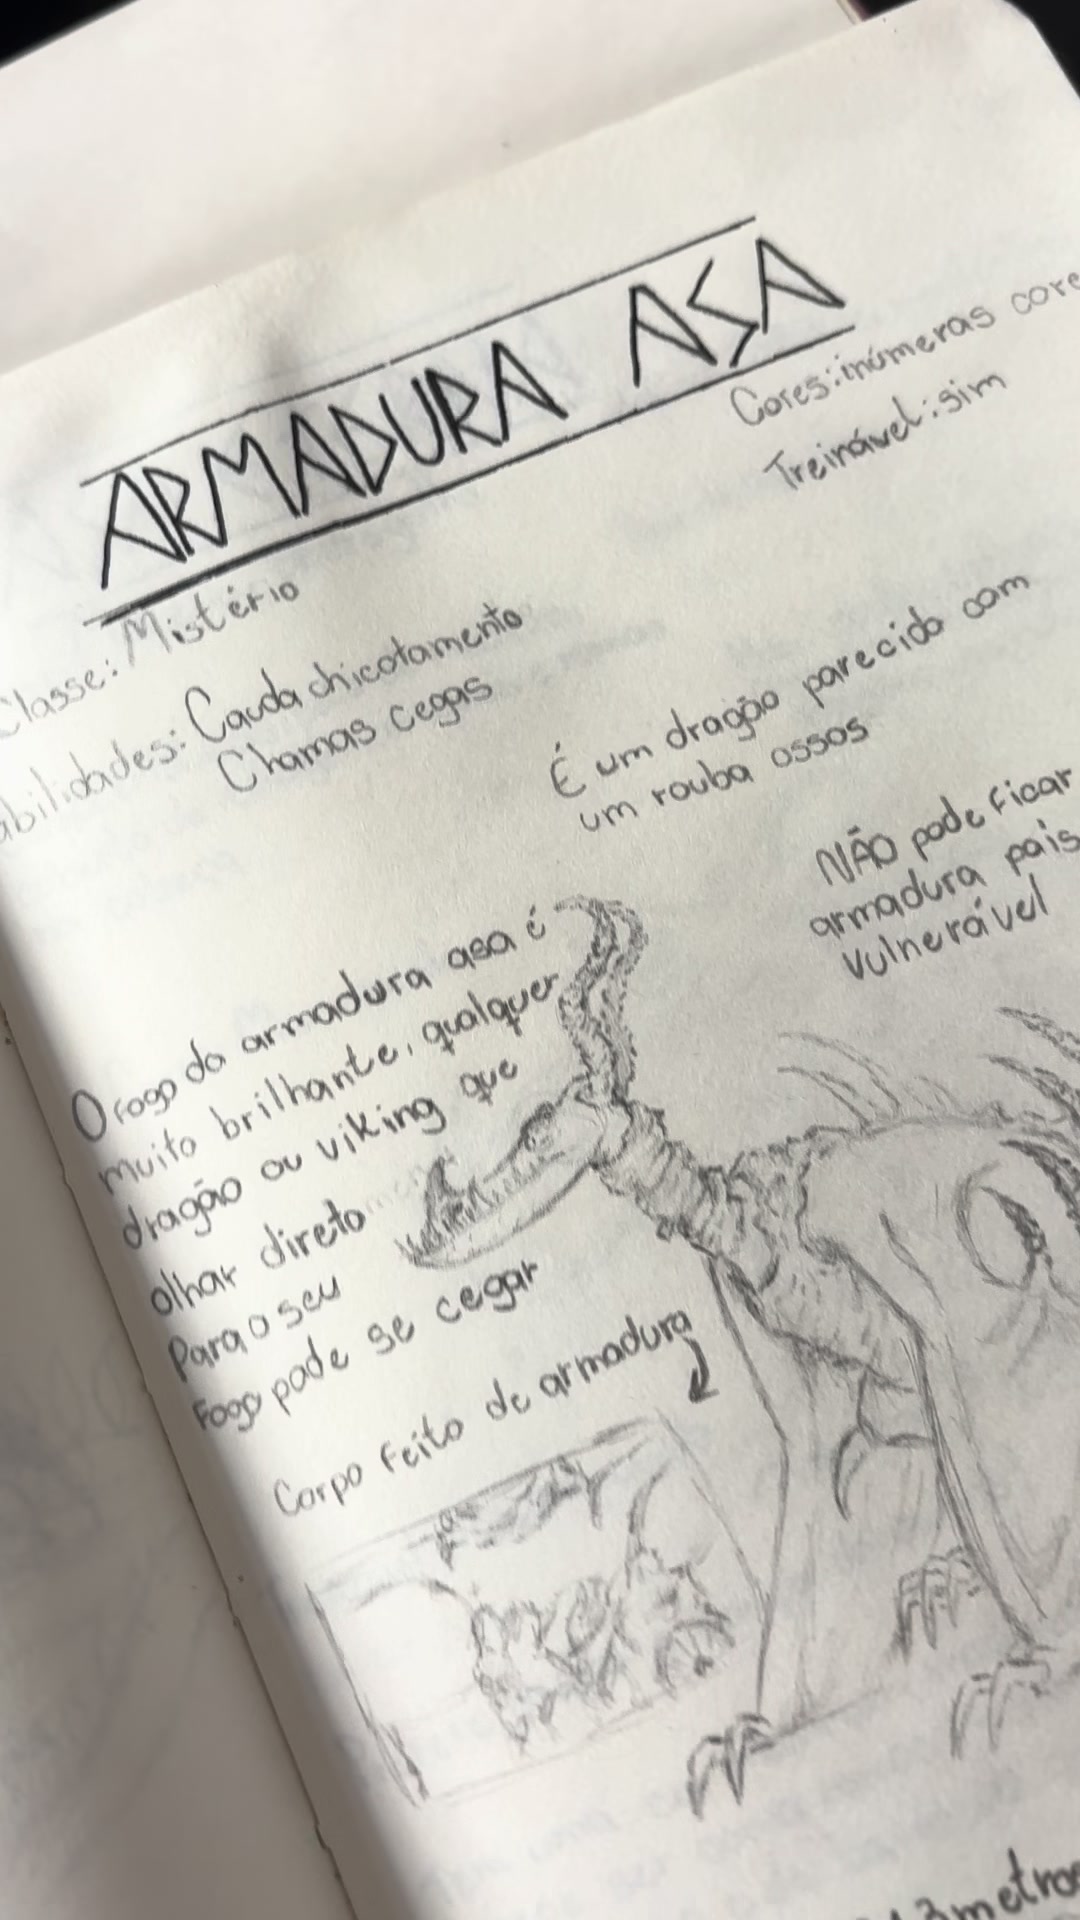 ARMADURA ASA
Cores: inúmeras core
Treinável: sim
Classe: Mistério
abilidades: Cauda chicotamento
Chamas cegas
É um dragão parecido com
um rouba ossos
NÃO pode ficar
armadura pois
vulnerável
O fogo do armadura asa é
muito brilhante, qualquer
dragão ou viking que
olhar direto
Para o seu
Fogo pode se cegar
Corpo feito de armadura
metros